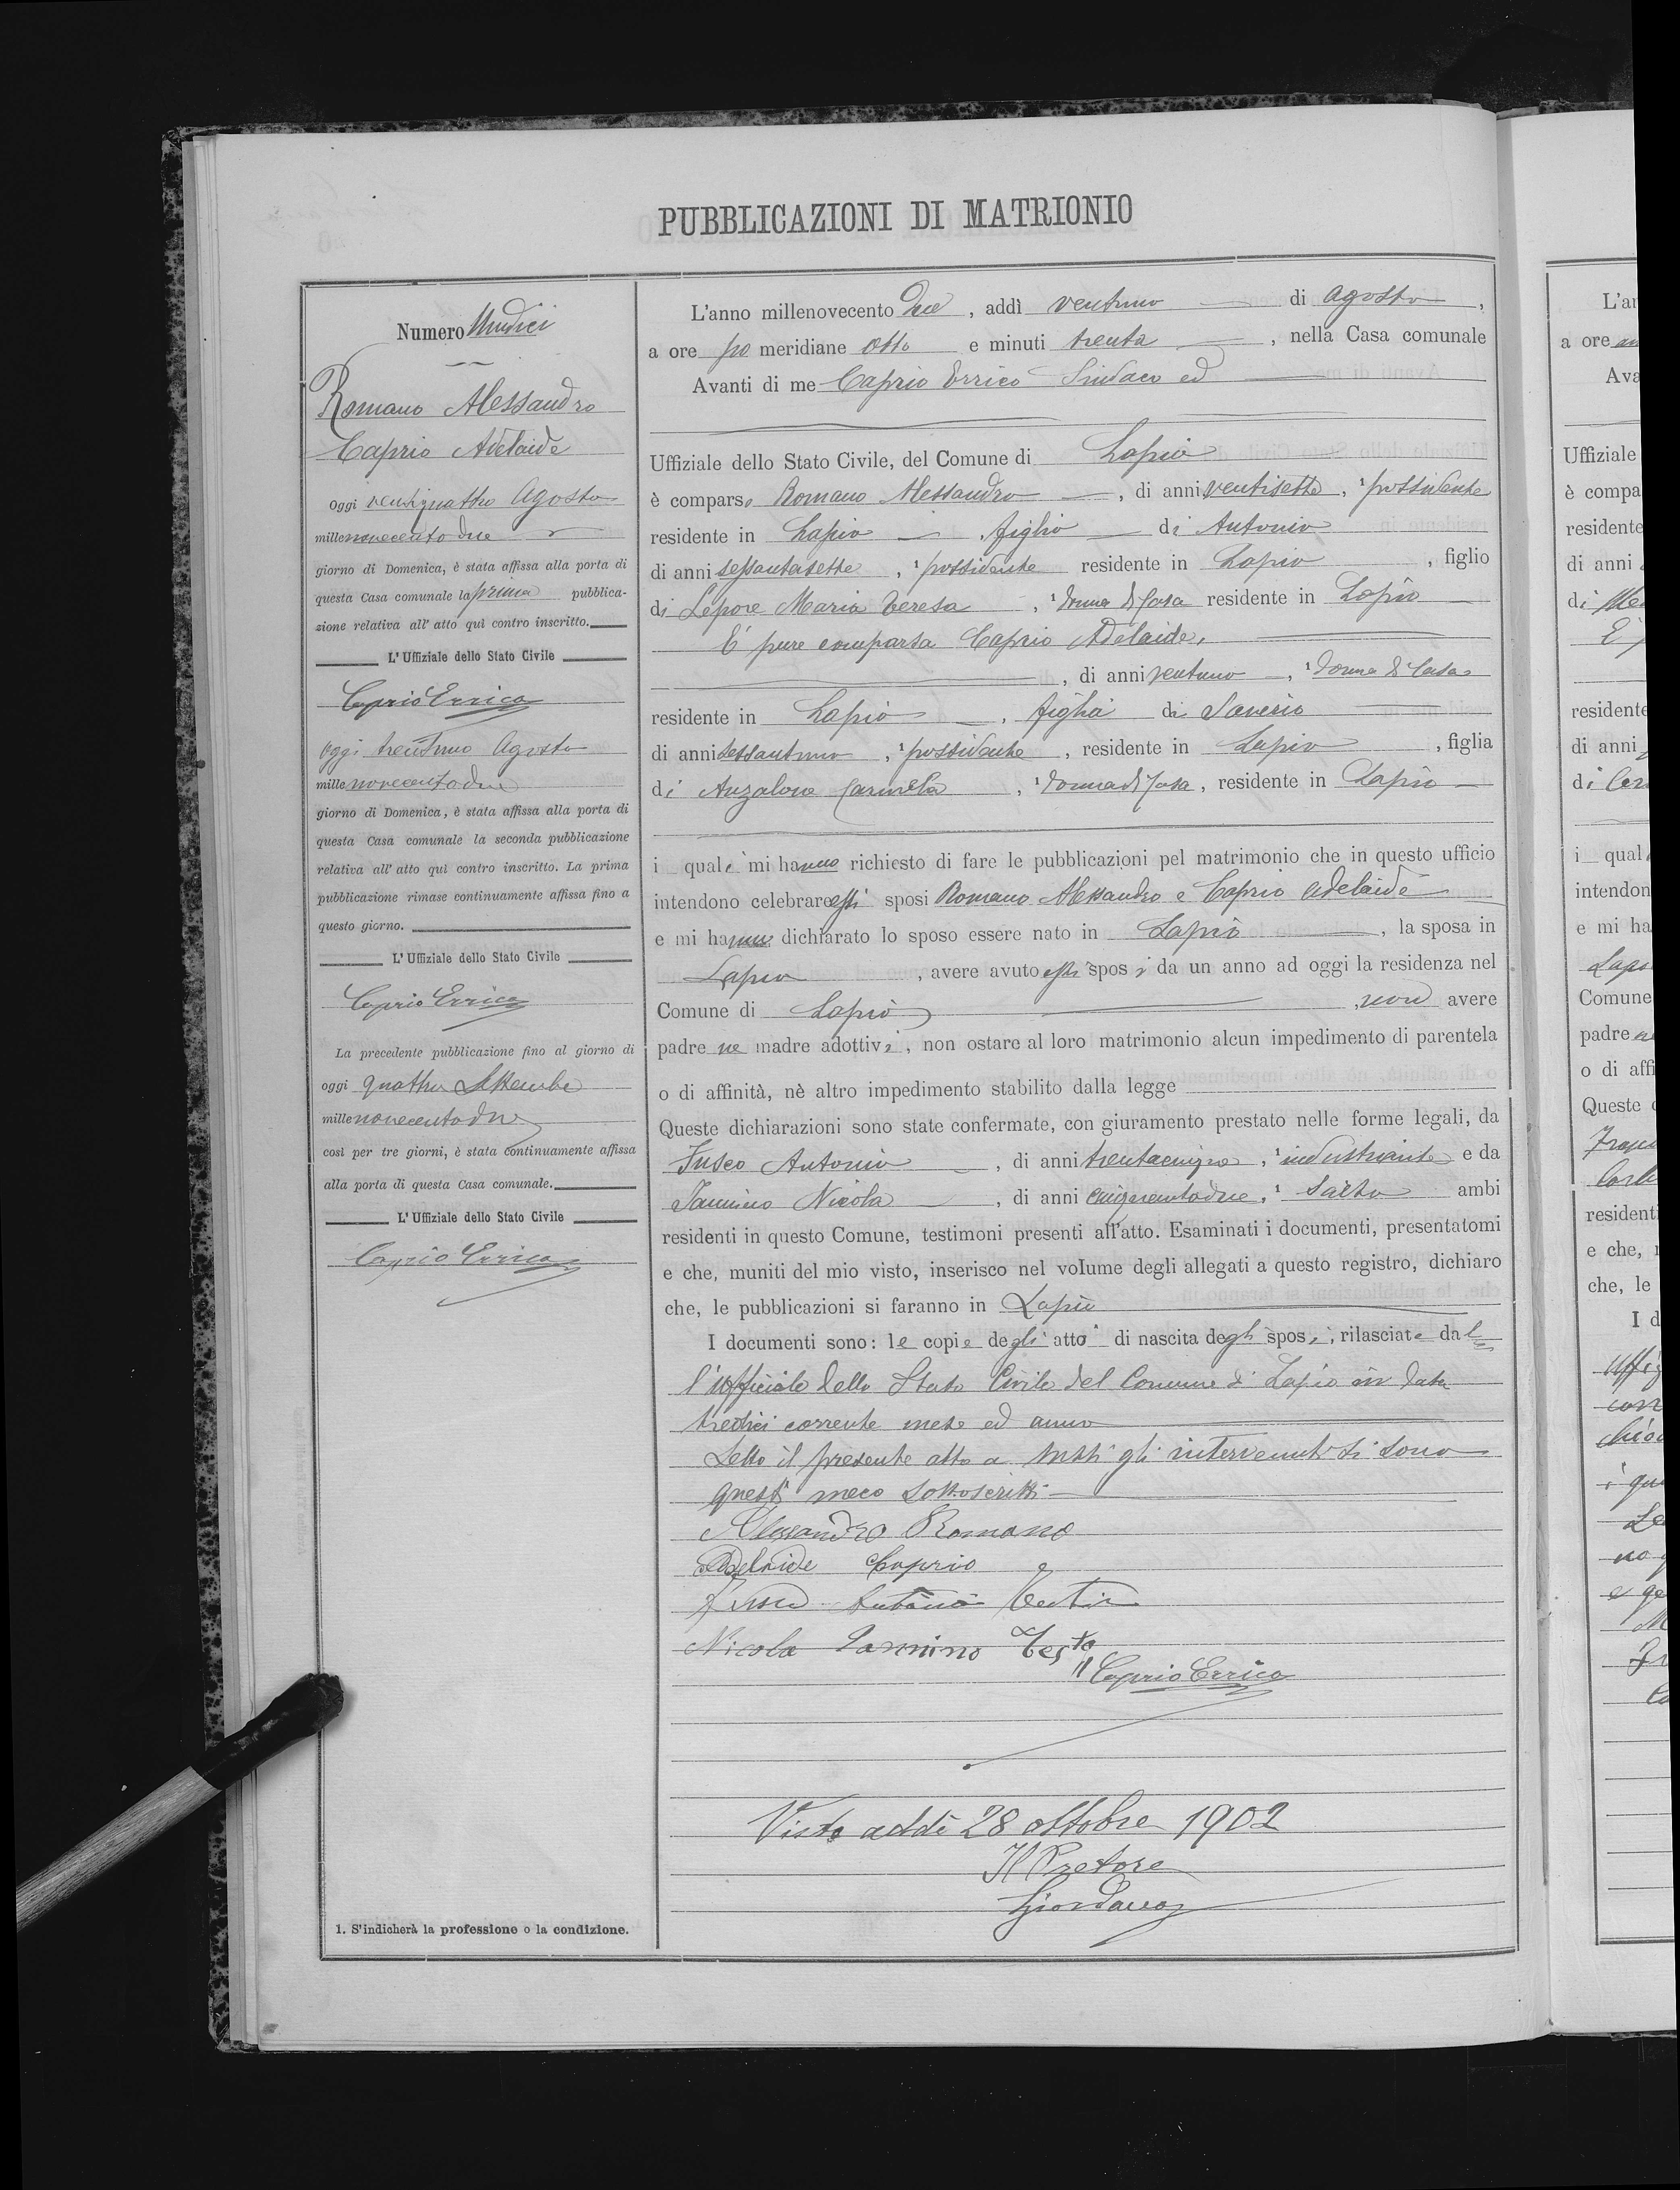 PUBBLICAZIONI DI MATRIONIO
Numero Undici
Romano Alessandro
Caprio Adelaide
Oggi ventiquattro Agosto
millenovecentodue
giorno di Domenica, è stata affissa alla porta di
questa Casa comunale la prima pubblica-
zione relativa all' atto quì contro inscritto.
L' Uffiziale dello Stato Civile
Caprio Errico
oggi trentuno Agosto
millenovecentodue
giorno di Domenica, è stata affissa alla porta di
questa Casa comunale la seconda pubblicazione
relativa all' atto qui contro inscritto. La prima
pubblicazione rimase continuamente affissa fino a
questo giorno.
L' Uffiziale dello Stato Civile
Caprio Errico
La precedente pubblicazione fino al giorno di
oggi quattro Settembre
millenovecentodue
così per tre giorni, è stata continuamente affissa
alla porta di questa Casa comunale.
L' Uffiziale dello Stato Civile
Caprio Errico
1. S'indicherà la professione o la condizione.
L'anno millenovecento due, addì ventuno di Agosto,
a ore po meridiane otto e minuti trenta, nella Casa comunale
Avanti di me Caprio Errico Sindaco ed
Uffiziale dello Stato Civile, del Comune di Lapio
è comparso Romano Alessandro, di anni ventisette, ¹ possidente
residente in Lapio, figlio di Antonio
di anni sessantasette, ¹ possidente residente in Lapio, figlio
di Lepore Maria Teresa, ¹ donna di Casa residente in Lapio
E' pure comparsa Caprio Adelaide,
, di anni ventuno, ¹ donna di Casa
residente in Lapio, figlia di Saverio
di anni sessantuno, ¹ possidente, residente in Lapio, figlia
di Anzalone Carmela, ¹ donna di Casa, residente in Lapio
i quali mi hanno richiesto di fare le pubblicazioni pel matrimonio che in questo ufficio
intendono celebrare essi sposi Romano Alessandro e Caprio Adelaide
e mi hanno dichiarato lo sposo essere nato in Lapio, la sposa in
Lapio, avere avuto essi sposi da un anno ad oggi la residenza nel
Comune di Lapio, non avere
padre ne madre adottivi, non ostare al loro matrimonio alcun impedimento di parentela
o di affinità, nè altro impedimento stabilito dalla legge
Queste dichiarazioni sono state confermate, con giuramento prestato nelle forme legali, da
Fusco Antonio, di anni trentacinque, ¹ industriante e da
Iannino Nicola, di anni cinquantadue, ¹ Sarto ambi
residenti in questo Comune, testimoni presenti all'atto. Esaminati i documenti, presentatomi
e che, muniti del mio visto, inserisco nel volume degli allegati a questo registro, dichiaro
che, le pubblicazioni si faranno in Lapio
I documenti sono: le copie degli atto di nascita degli sposi, rilasciate dal
l'ufficiale dello Stato Civile del Comune di Lapio in data
tredici corrente mese ed anno
Letto il presente atto a tutti gli intervenuti si sono
questi meco sottoscritti
Alessandro Romano
Adelaide Caprio
Fusco Antonio
Nicola Iannino Testo
Caprio Errico
Visto addì 28 ottobre 1902
Il Pretore
Giordano
L'an
a ore an
Ava
Uffiziale
è compa
residente
di anni
di
E' p
residente
di anni
di
i qual
intendon
e mi ha
Lapi
Comune
padre ne
o di affi
Queste
resident
e che,
che, le
I d